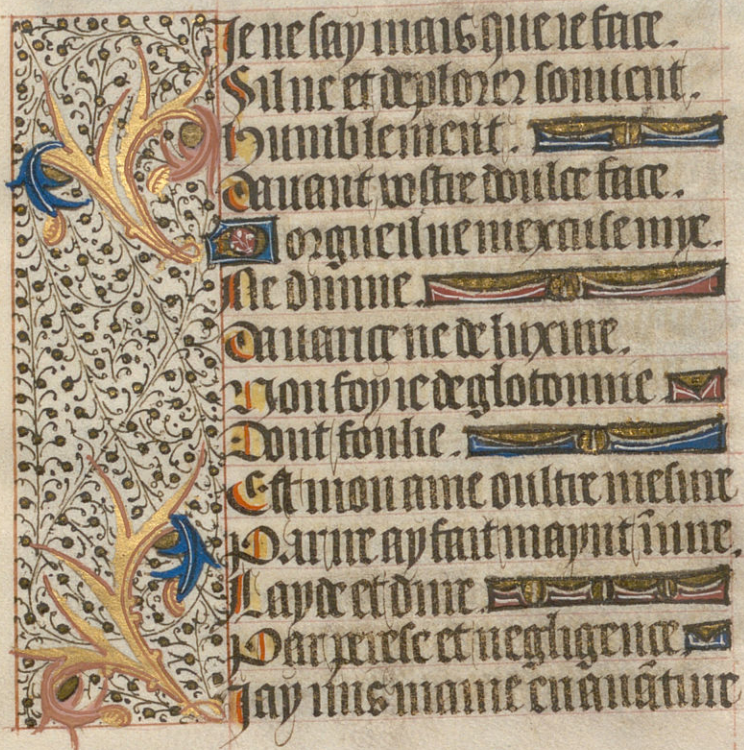 Je ne say mais que ie face.
Si lue et deplorer souuent.
Humblement.
Dauant vostre doulce face.
Dorgueil ne mexcuse mye.
Ne dunue.
Dauarice ne de luxure.
Non foy ie de glotonnie
Dont foulie.
Est mon ame oultre mesure
Par ire ay fait maynt iniure.
Layde et dure.
Par perese et negligence
Jay mis mame en auāture